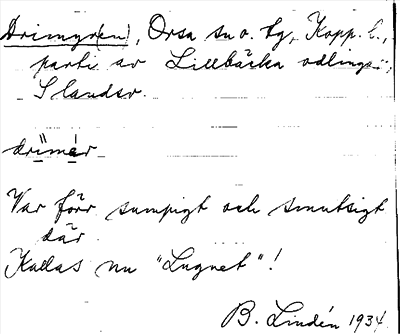 Drimyr(en), Orsa sn o. tg, Kopp. l.,
parti av Lillbäcka odlings-
Slander.
drïmér
Var förr sumpigt och smutsigt
där.
Kallas nu "Lugnet"!
B. Lindén 1934